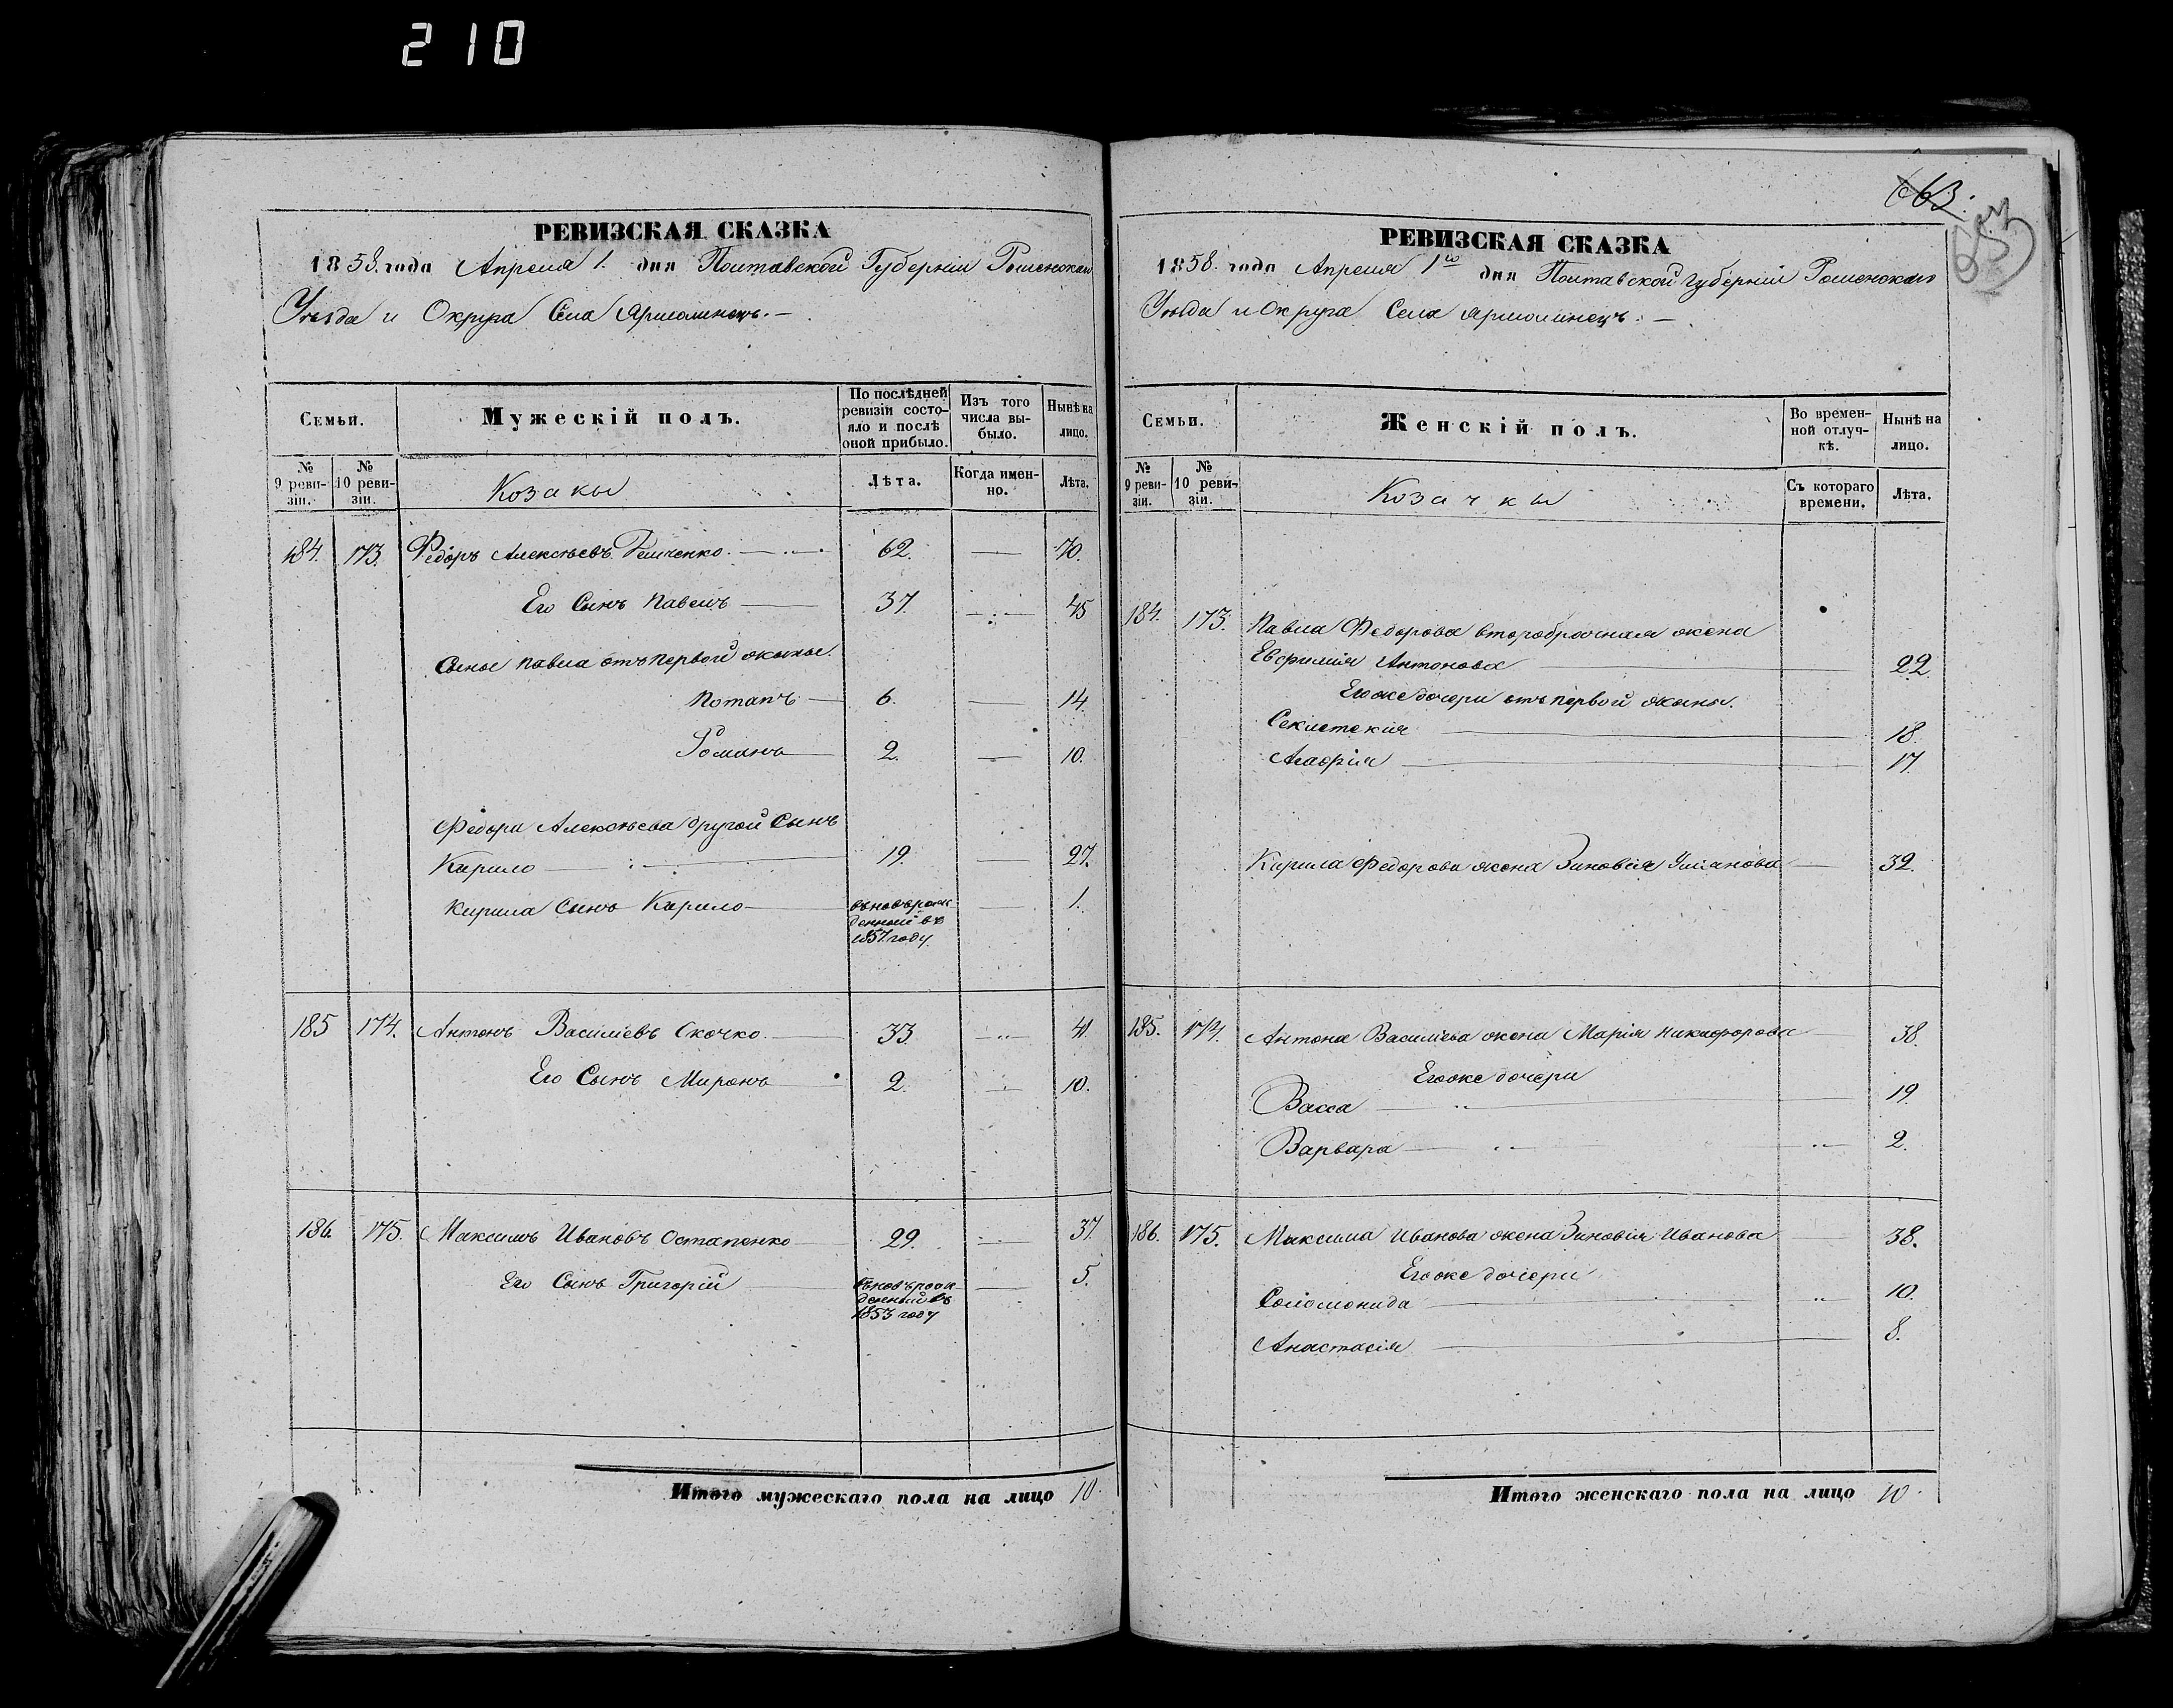 210
РЕВИЗСКАЯ СКАЗКА
1858. года Апреля 1. дня Полтавской Губернии Роменскаго
Уѣзда и Округа Села Ярмолинецъ. —
Семьи.
Мужескій полъ.
По послѣдней ревизіи состо-
яло и послѣ
оной прибыло.
Изъ того
числа вы-
было.
Нынѣ на
лицо.
№ 9 реви-
зіи.
№ 10 реви-
зіи.
Козаки
Лѣта.
Когда имен-
но.
Лѣта.
184. 173. Федоръ Алексѣевъ 62. — 70.
Его Сынъ Павелъ — 37. — 45
Сыны Павла отъ первой жены.
Потапъ — 6. — 14.
Романъ — 2. — 10.
Федора Алексѣева другой Сынъ
Кирило — 19. — 27.
Кирила Сынъ Кирило — вновь рож-
денный въ
1857 году — 1.
185 174. Антонъ Василіевъ Скочко. — 33. — 41.
Его Сынъ Миронъ — 2. — 10.
186. 175. Максимъ Ивановъ Остапенко — 29. — 37.
Его Сынъ Григорій — вновь рож-
денный въ
1853 году — 5.
Итого мужескаго пола на лицо 10.
663.
653
РЕВИЗСКАЯ СКАЗКА
1858. года Апреля 1го дня Полтавской Губерніи Роменскаго
Уѣзда и Округа Села Ярмолинецъ. —
Семьи.
Женскій полъ.
Во времен-
ной отлуч-
кѣ.
Нынѣ на
лицо.
№ 9 реви-
зіи.
№ 10 реви-
зіи.
Козачки
Съ котораго
времени.
Лѣта.
184. 173. Павла Федорова второбрачная жена
Евфимія Антонова — 22
Его же дочери отъ первой жены.
18.
Агафія — 17.
Кирила Федорова жена Зиновія — 32.
185. 174. Антона Василіева жена Марія Никифорова — 38.
Его же дочери
Васса — 19.
Варвара — 2.
186. 175. Максима Иванова жена Зиновія Иванова — 38.
Его же дочери
Соломонида — 10.
Анастасія — 8.
Итого женскаго пола на лицо 10.